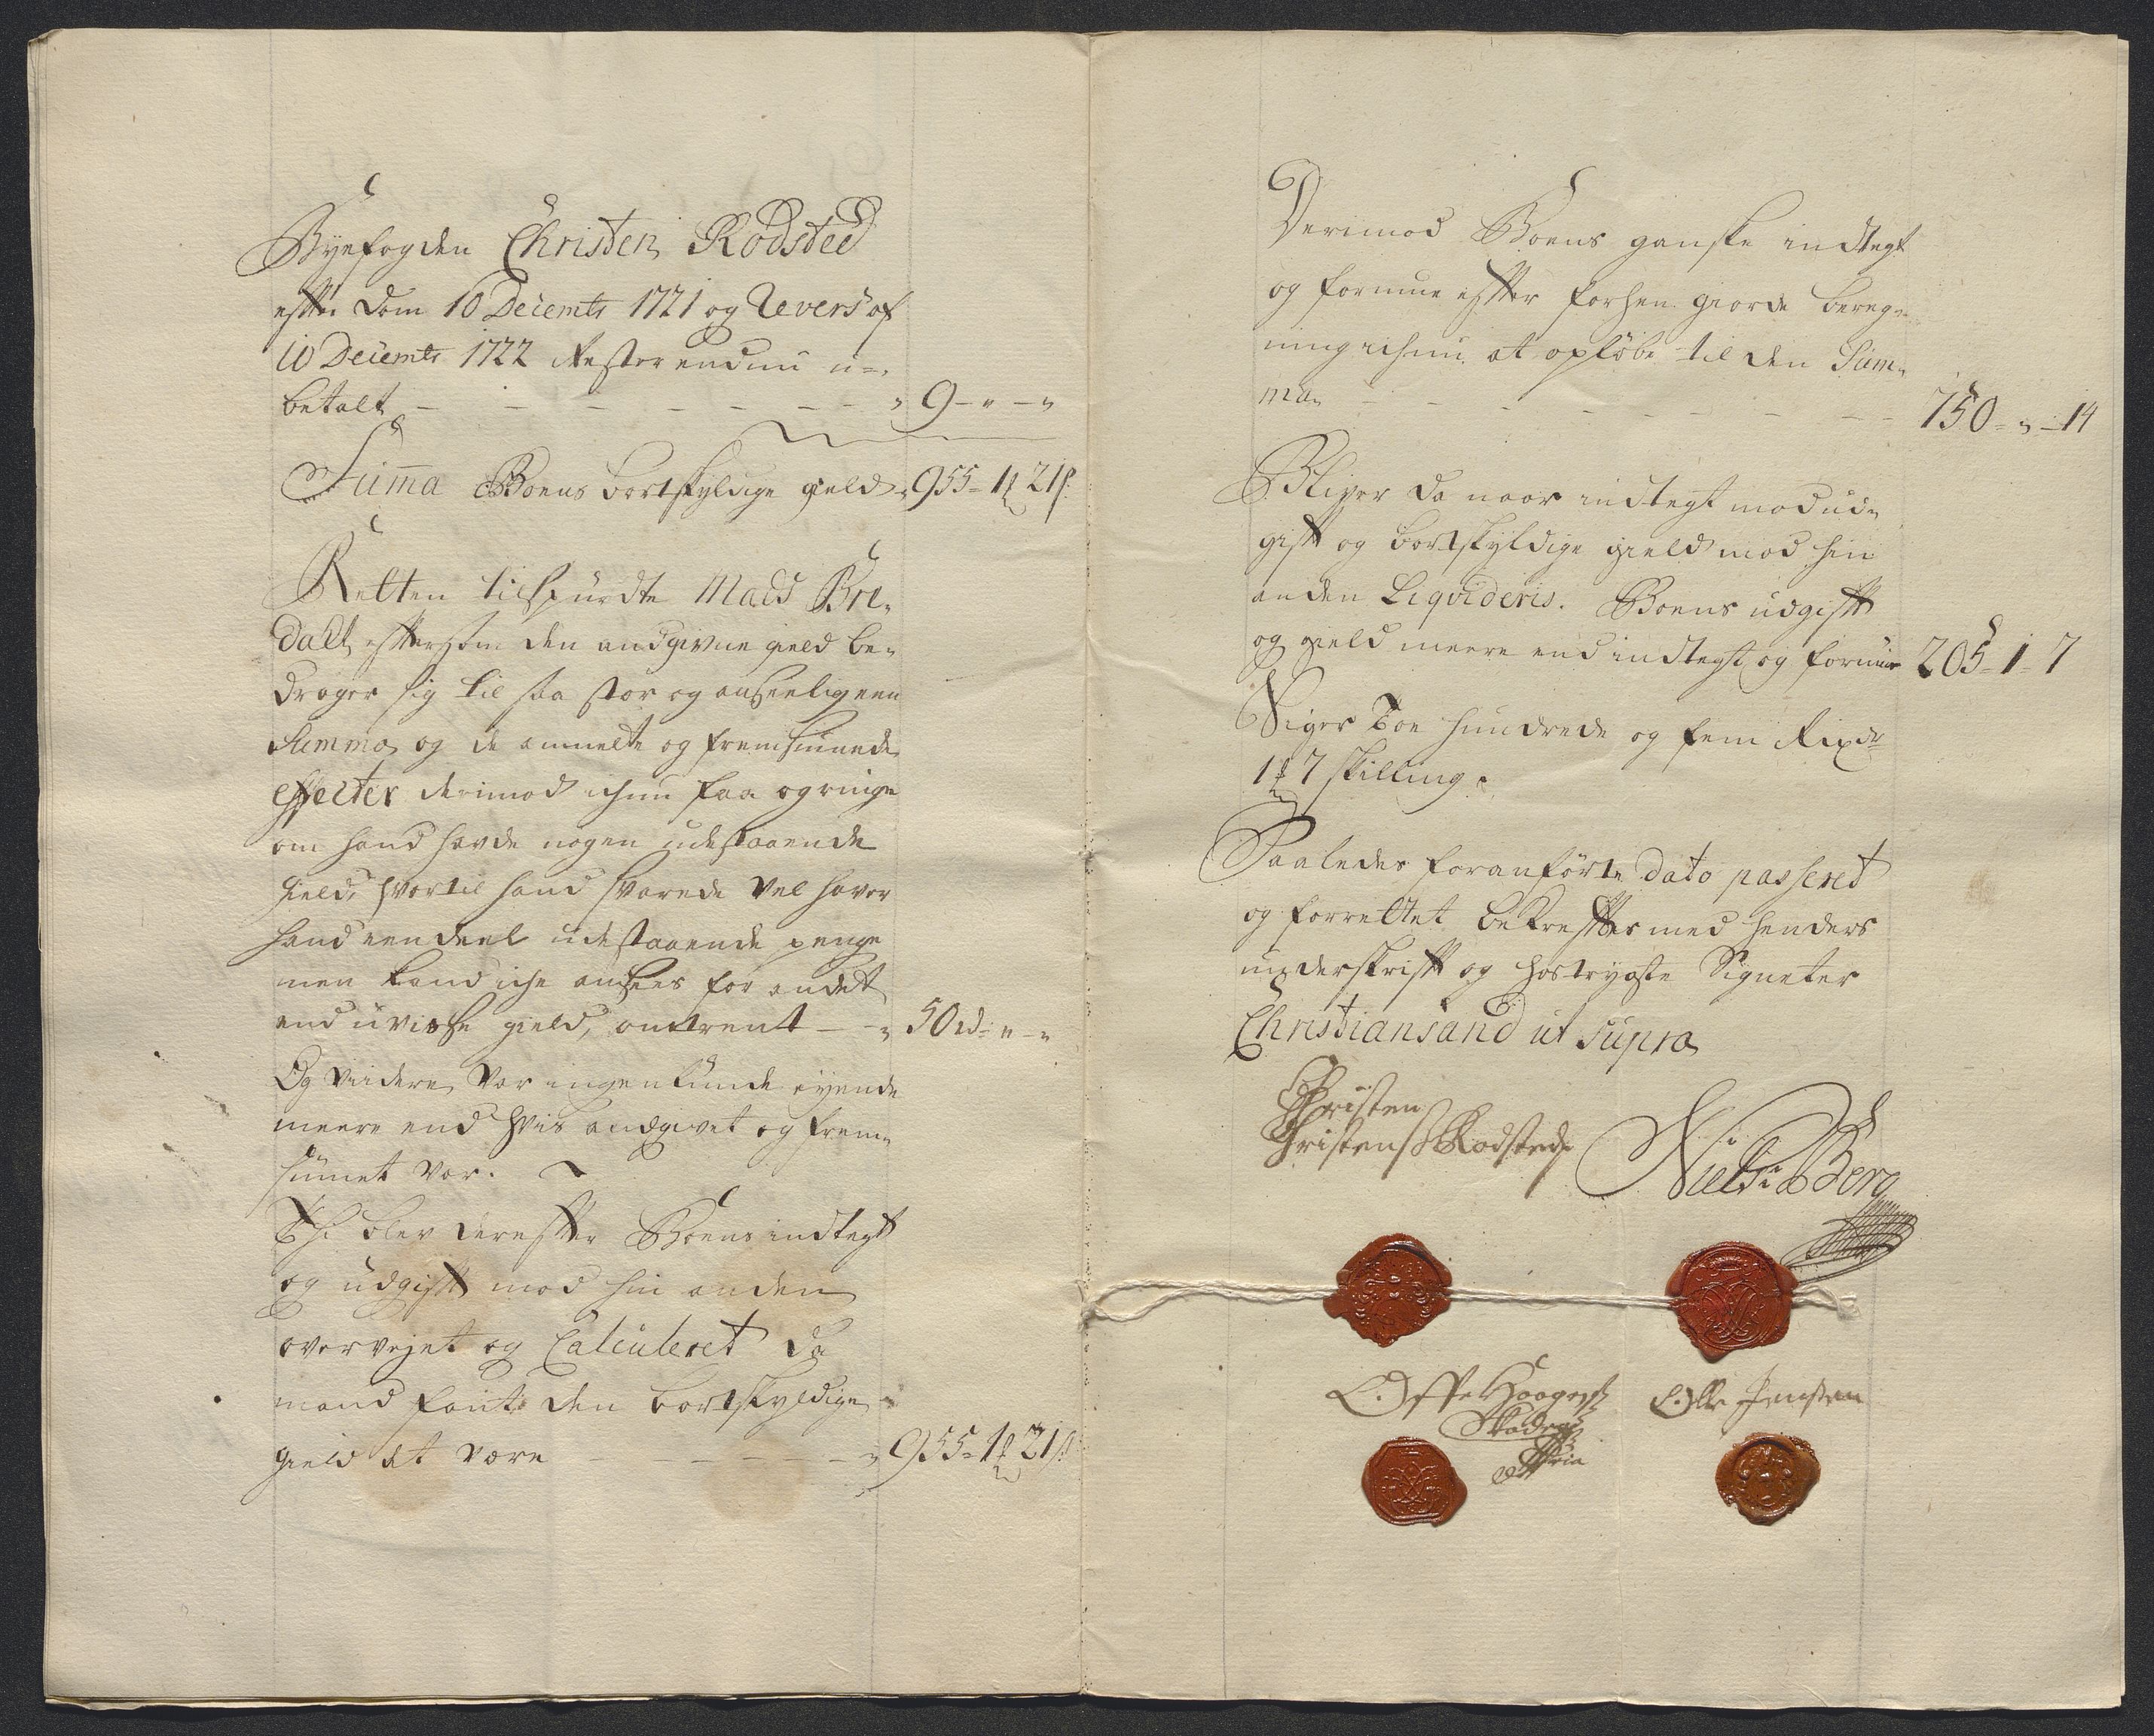 Byefogden Christen Rodsted
efter Dom 10 Decembr 1721 og Revers af
10 Decembr 1722 Rester endnu u-
betalt - - - - - - - - " 9 - " - "
Suma Boens bortskyldige gield - 955 - 1 ꝑ 21 ß
Retten tilspurdte Mads Bre-
dall, eftersom den andgivne gield be-
drager sig til saa stor og anseelig een
Summa og de anmelte og fremsiunede
effecter derimod ichun faa og ringe
om hand hafde nogen udestaaende
gield, hvortil hand svarede vel haver
hand een deel udestaaende penge
men kand iche ansees for andet
end uvisse gield, omtrent - - " 50 rd - " - "
Og viidere var ingen kunde eyende
meere end hvis andgivet og frem-
siunet var.
Thi blev derefter Boens indtegt
og udgift mod hin anden
overvejet og Calculeret da
mand fant den bortskyldige
gield at være - - - - - - " 955 - 1 ꝑ 21 ß
Derimod Boens ganske indtegt
og formue efter forhen giorde bereg-
ning ichun at opløbe til den Sum-
ma - - - - - - - - 750 - " - 14
Bliver da naar indtegt mod ud-
gift og bortskyldige gield mod hin
anden Liqvideris. Boens udgift
og gield meere end indtegt og formue 205 - 1 - 7
Siger Toe hundrede og fem Rixdr
1 ꝑ 7 skilling.
Saaledes foranførte dato passeret
og forrettet bekrefter med henders
underskrift og hostrygte Signeter
Christiansand ut supra
Christen
Christens Rodsted
Niels Berg
Olle Jensen